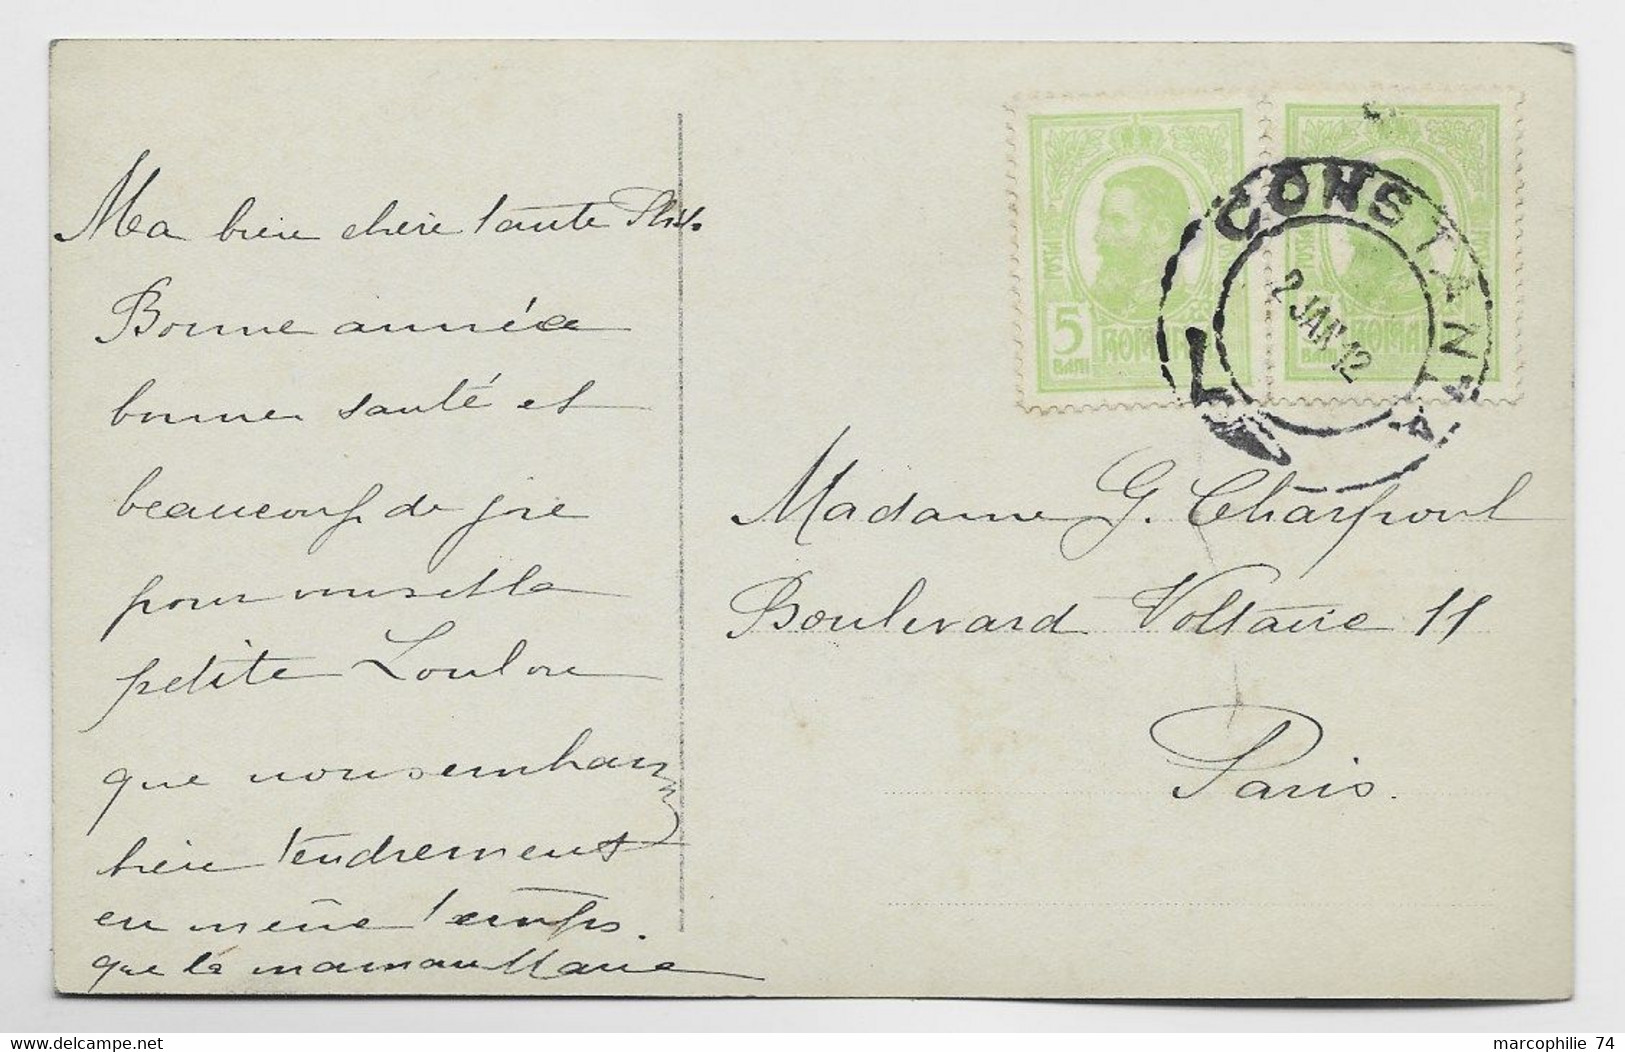 Ma bien chère tante
Bonne année
bonne santé et
beaucoup de joie
pour vous et la
petite Loulou
que nous embrassons
bien tendrement
en même temps.
que la maman Marie
POSTA
5
BANI
ROMANIA
CONSTANTA
2 JAN 12
Madame G. Charpont
Boulevard Voltaire 11
Paris.
marcophilie 74